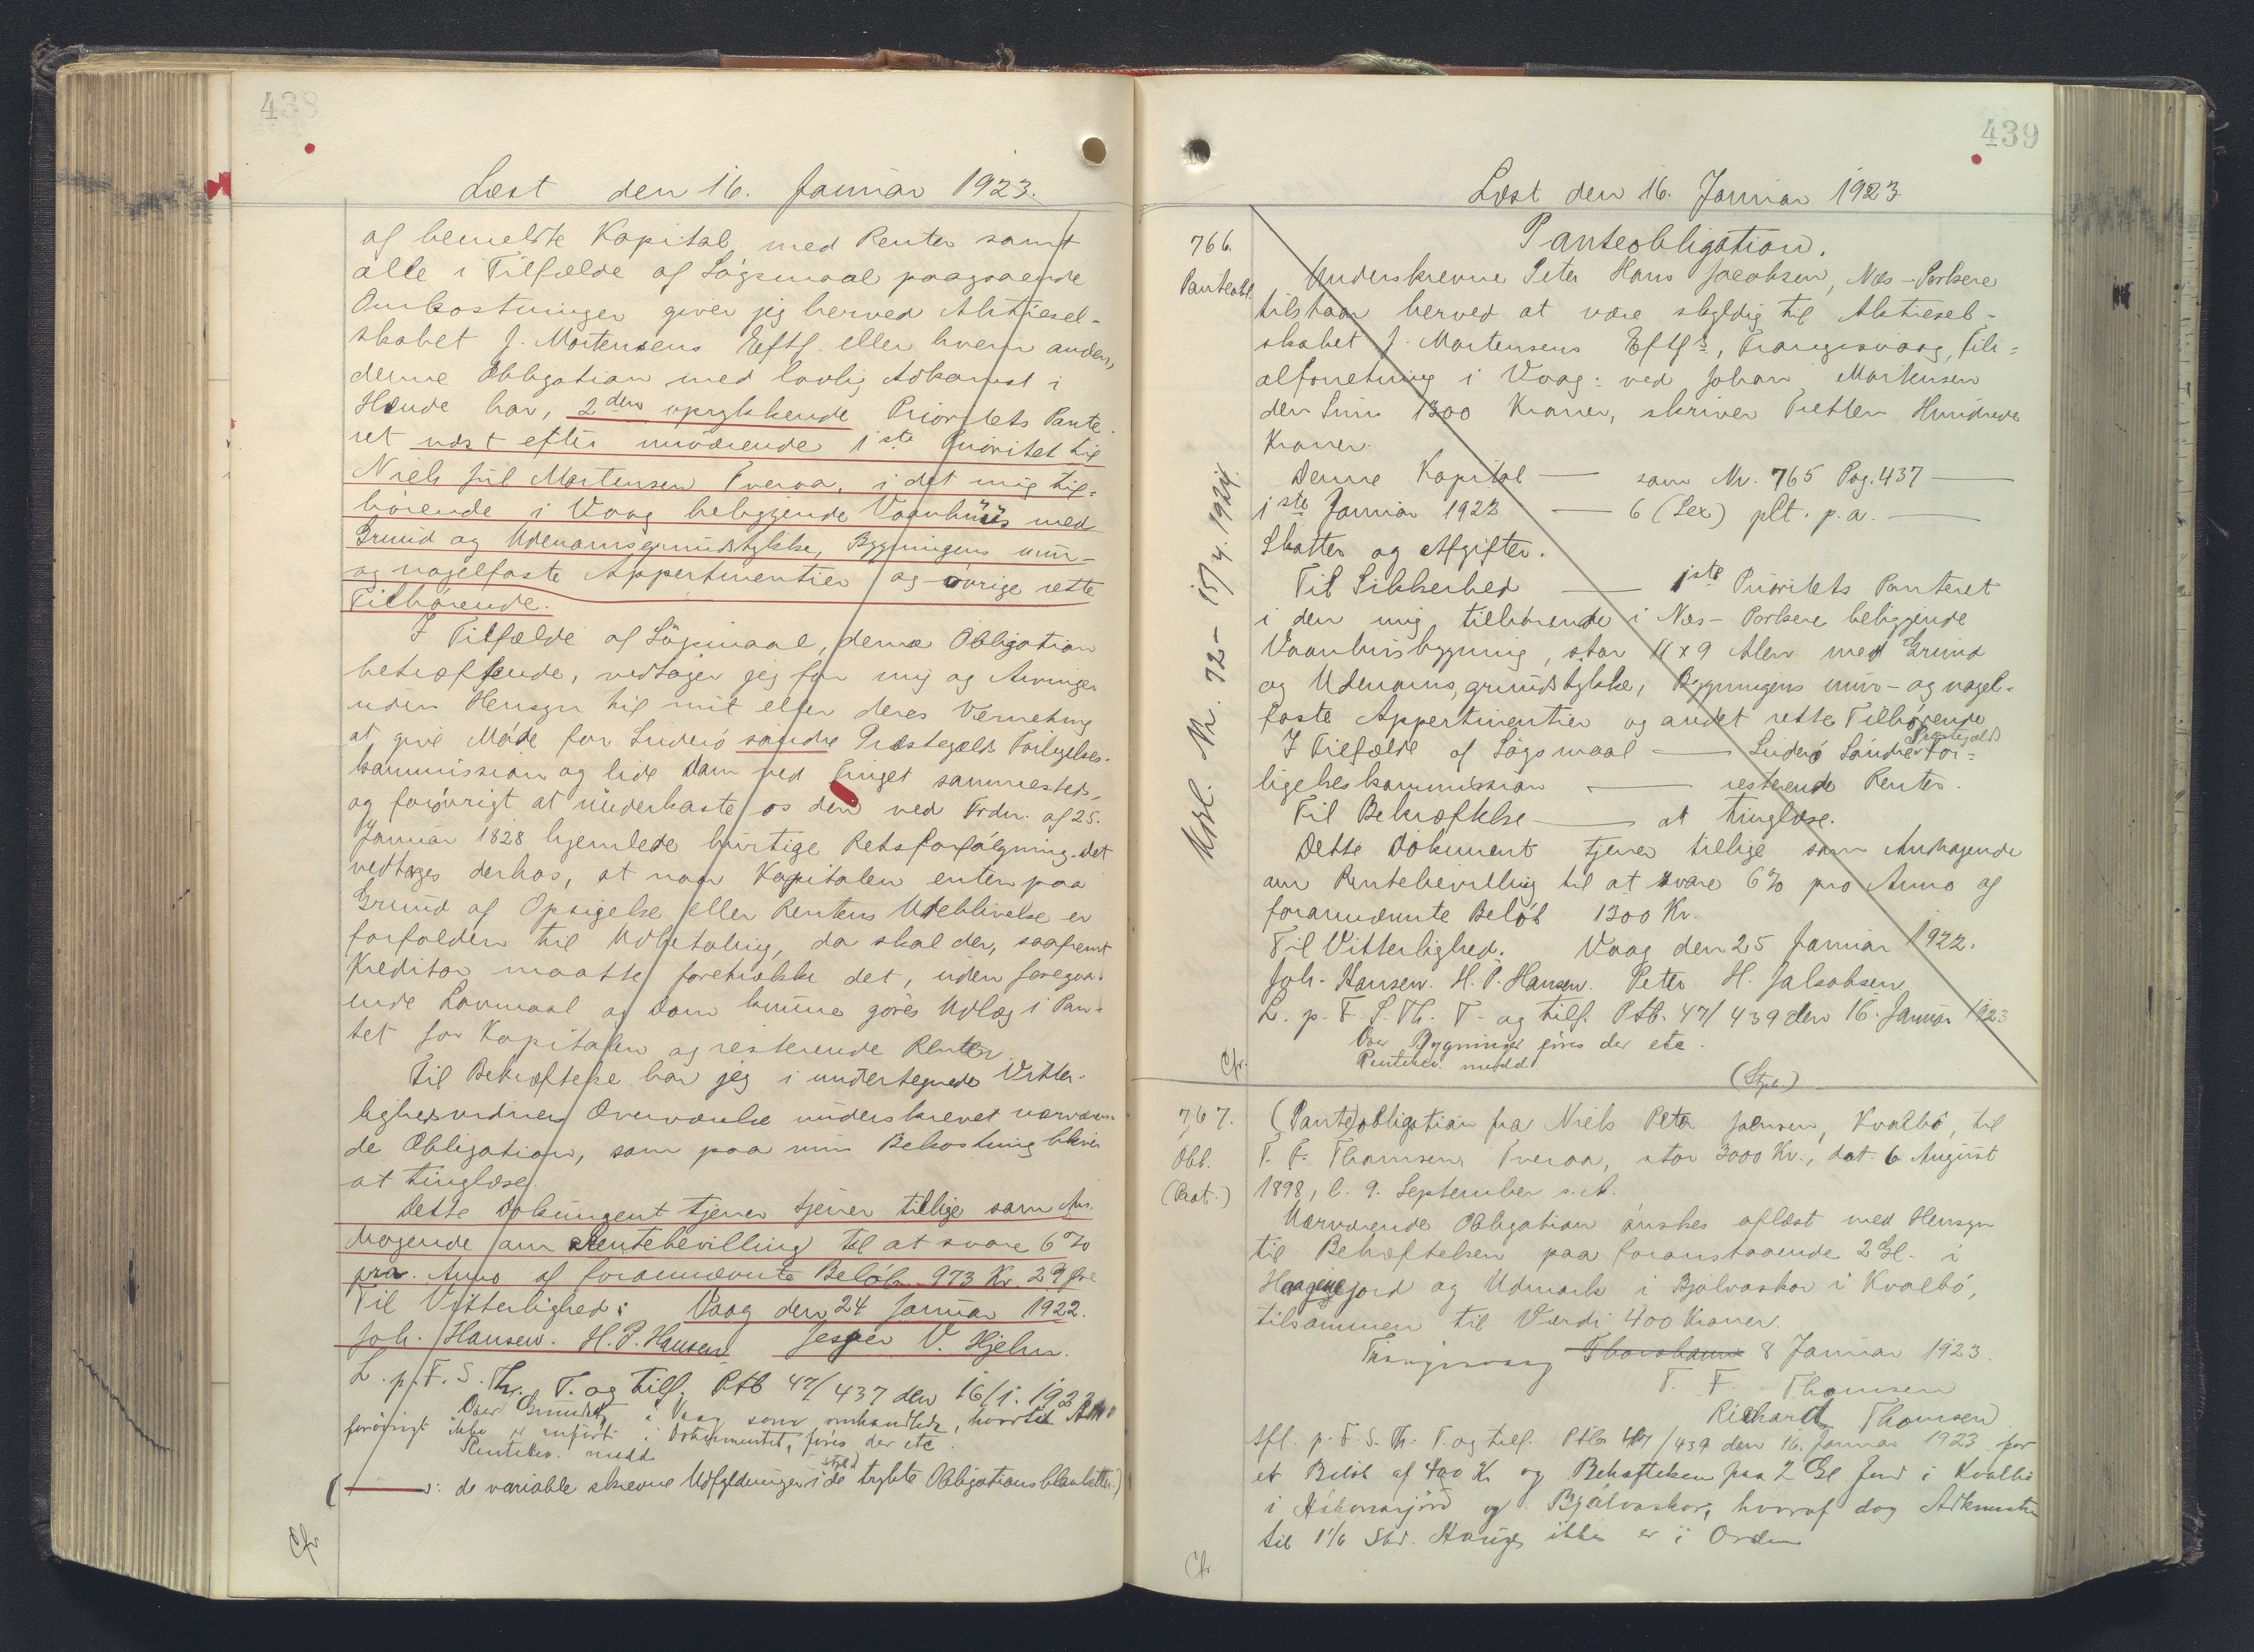 438
Læst den 16. Januar 1923.
af bemeldte Kapital med Renter samt
alle i Tilfælde af Lögsmaal paagaaende
Omkostninger giver jeg herved Aktiesel-
skabet J. Mortensens Eftf. eller hvem anden,
denne Obligation med lovlig Adkomst i
Hænde har, 2den oprykkende Prioritets Pante-
ret næst efter nuværende 1ste Prioritet til
Niels Jul Mortensen Tveraa, i det mig til-
hörende i Vaag beliggende Vaanhuus med
Grund og Udenomsgrundstykke, Bygningens mur-
og nagelfaste Appertinentier og övrige rette
Tilhörende.
I Tilfælde af Lögsmaal, denne Obligation
betræffende, vedtager jeg for mig og Arvinger
uden Hensyn til mit eller deres Værneting
at give Möde for Suderö söndre Præstegælds Forligelses-
kommission og lide Dom ved Tinget sammesteds,
og forövrigt at underkaste os den ved Frdn. af 25.
Januar 1828 hjemlede hurtige Retsforfölgning. Det
vedtages derhos, at naar Kapitalen enten paa
Grund af Opsigelse eller Rentens Udeblivelse er
forfalden til Udbetaling, da skal der, saafremt
Kreditor maatte foretrække det, uden foregaa-
ende Lovmaal og Dom kunne göres Udlæg i Pan-
tet for Kapitalen og resterende Renter.
Til Bekræftelse har jeg i undertegnede Vitter-
lighedsvidners Overværelse underskrevet nærværen-
de Obligation, som paa min Bekostning bliver
at tinglæse.
Dette Dokument tjener tjener tillige som An-
dragende om Rentebevilling til at svare 6%
pro. Anno af forannævnte Belöb 973 Kr. 29 Øre
Til Vitterlighed: Vaag den 24 Januar 1922.
Joh. Hansen. H. P. Hansen Jesper V. Hjelm.
L. p. F. S. Th. T. og tilf. Ptb 47/437 den 16/1. 1923
Over Grunden i Vaag som omhandlede, hvortil Adk
forövrigt ikke er anfört i Dokumentet, föres der etc.
Rentebev. medd
( ——— ɔ: de variable skrevne Udfyldninger i de trykte Obligationsblanketter.)
Cfr
439
Læst den 16. Januar 1923
766.
Panteobl.
Panteobligation.
Underskrevne Peter Hans Jacobsen, Næs-Porkere
tilstaar herved at være skyldig til Aktiesel-
skabet J. Mortensens Eftfs, Trangisvaag, Fili-
alforretning i Vaag: ved Johan Mortensen
den Sum 1300 Kroner, skriver Tretten Hundrede
Kroner.
Denne Kapital —— som Nr. 765 Pag. 437 ——
1ste Januar 1922 —— 6 (Sex) pCt. p. a. ——
Skatter og Afgifter.
Til Sikkerhed —— 1ste Prioritets Panteret
i den mig tilhörende i Næs-Porkere beliggende
Vaanhusbygning, stor 11 x 9 Alen med Grund
og Udenoms, grundstykke, Bygningens mur- og nagel-
faste Appertinentier og andet rette Tilhörende
I Tilfælde af Lögsmaal —— Suderö Söndre Præstegjælds For-
ligelseskommission —— resterende Renter.
Til Bekræftelse —— at tinglæse.
Dette Dokument tjener tillige som Andragende
om Rentebevilling til at svare 6% pro Anno af
forannævnte Belöb 1300 Kr.
Til Vitterlighed. Vaag den 25 Januar 1922.
Joh. Hansen. H. P. Hansen. Peter H. Jakobsen
L. p. F. S. Th. T. og tilf. Ptb. 47/439 den 16. Januar 1923
Over Bygninger föres der etc.
Rentebev. medd
Cfr.
Udsl. Nr. 72 - 15/4. 1924.
767.
Obl.
(Prot.)
(Panteobligation fra Niels Peter Joensen, Kvalbö, til
T. F. Thomsen, Tveraa, stor 3000 Kr., dat. 6 August
1898, l. 9. September s. A.
Nærværende Obligation önskes aflæst med Hensyn
til Behæftelsen paa foranstaaende 2 Gl. i
Haugejord og Udmark i Bjalvaskor i Kvalbö,
tilsammen til Værdi 400 Kroner.
Trangisvaag Thorshavn 8 Januar 1923.
T. F. Thomsen
Richard Thomsen
Afl. p. F. S. Th. T. og tilf. Ptb 47/439 den 16. Januar 1923 for
et Belöb af 400 Kr og Behæftelsen paa 2 Gl Jord i Kvalbö
i Hákonarjörd og Bjálvaskor, hvoraf dog Adkomsten
til 1/6 Skd. Hauge ikke er i Orden
Cfr.